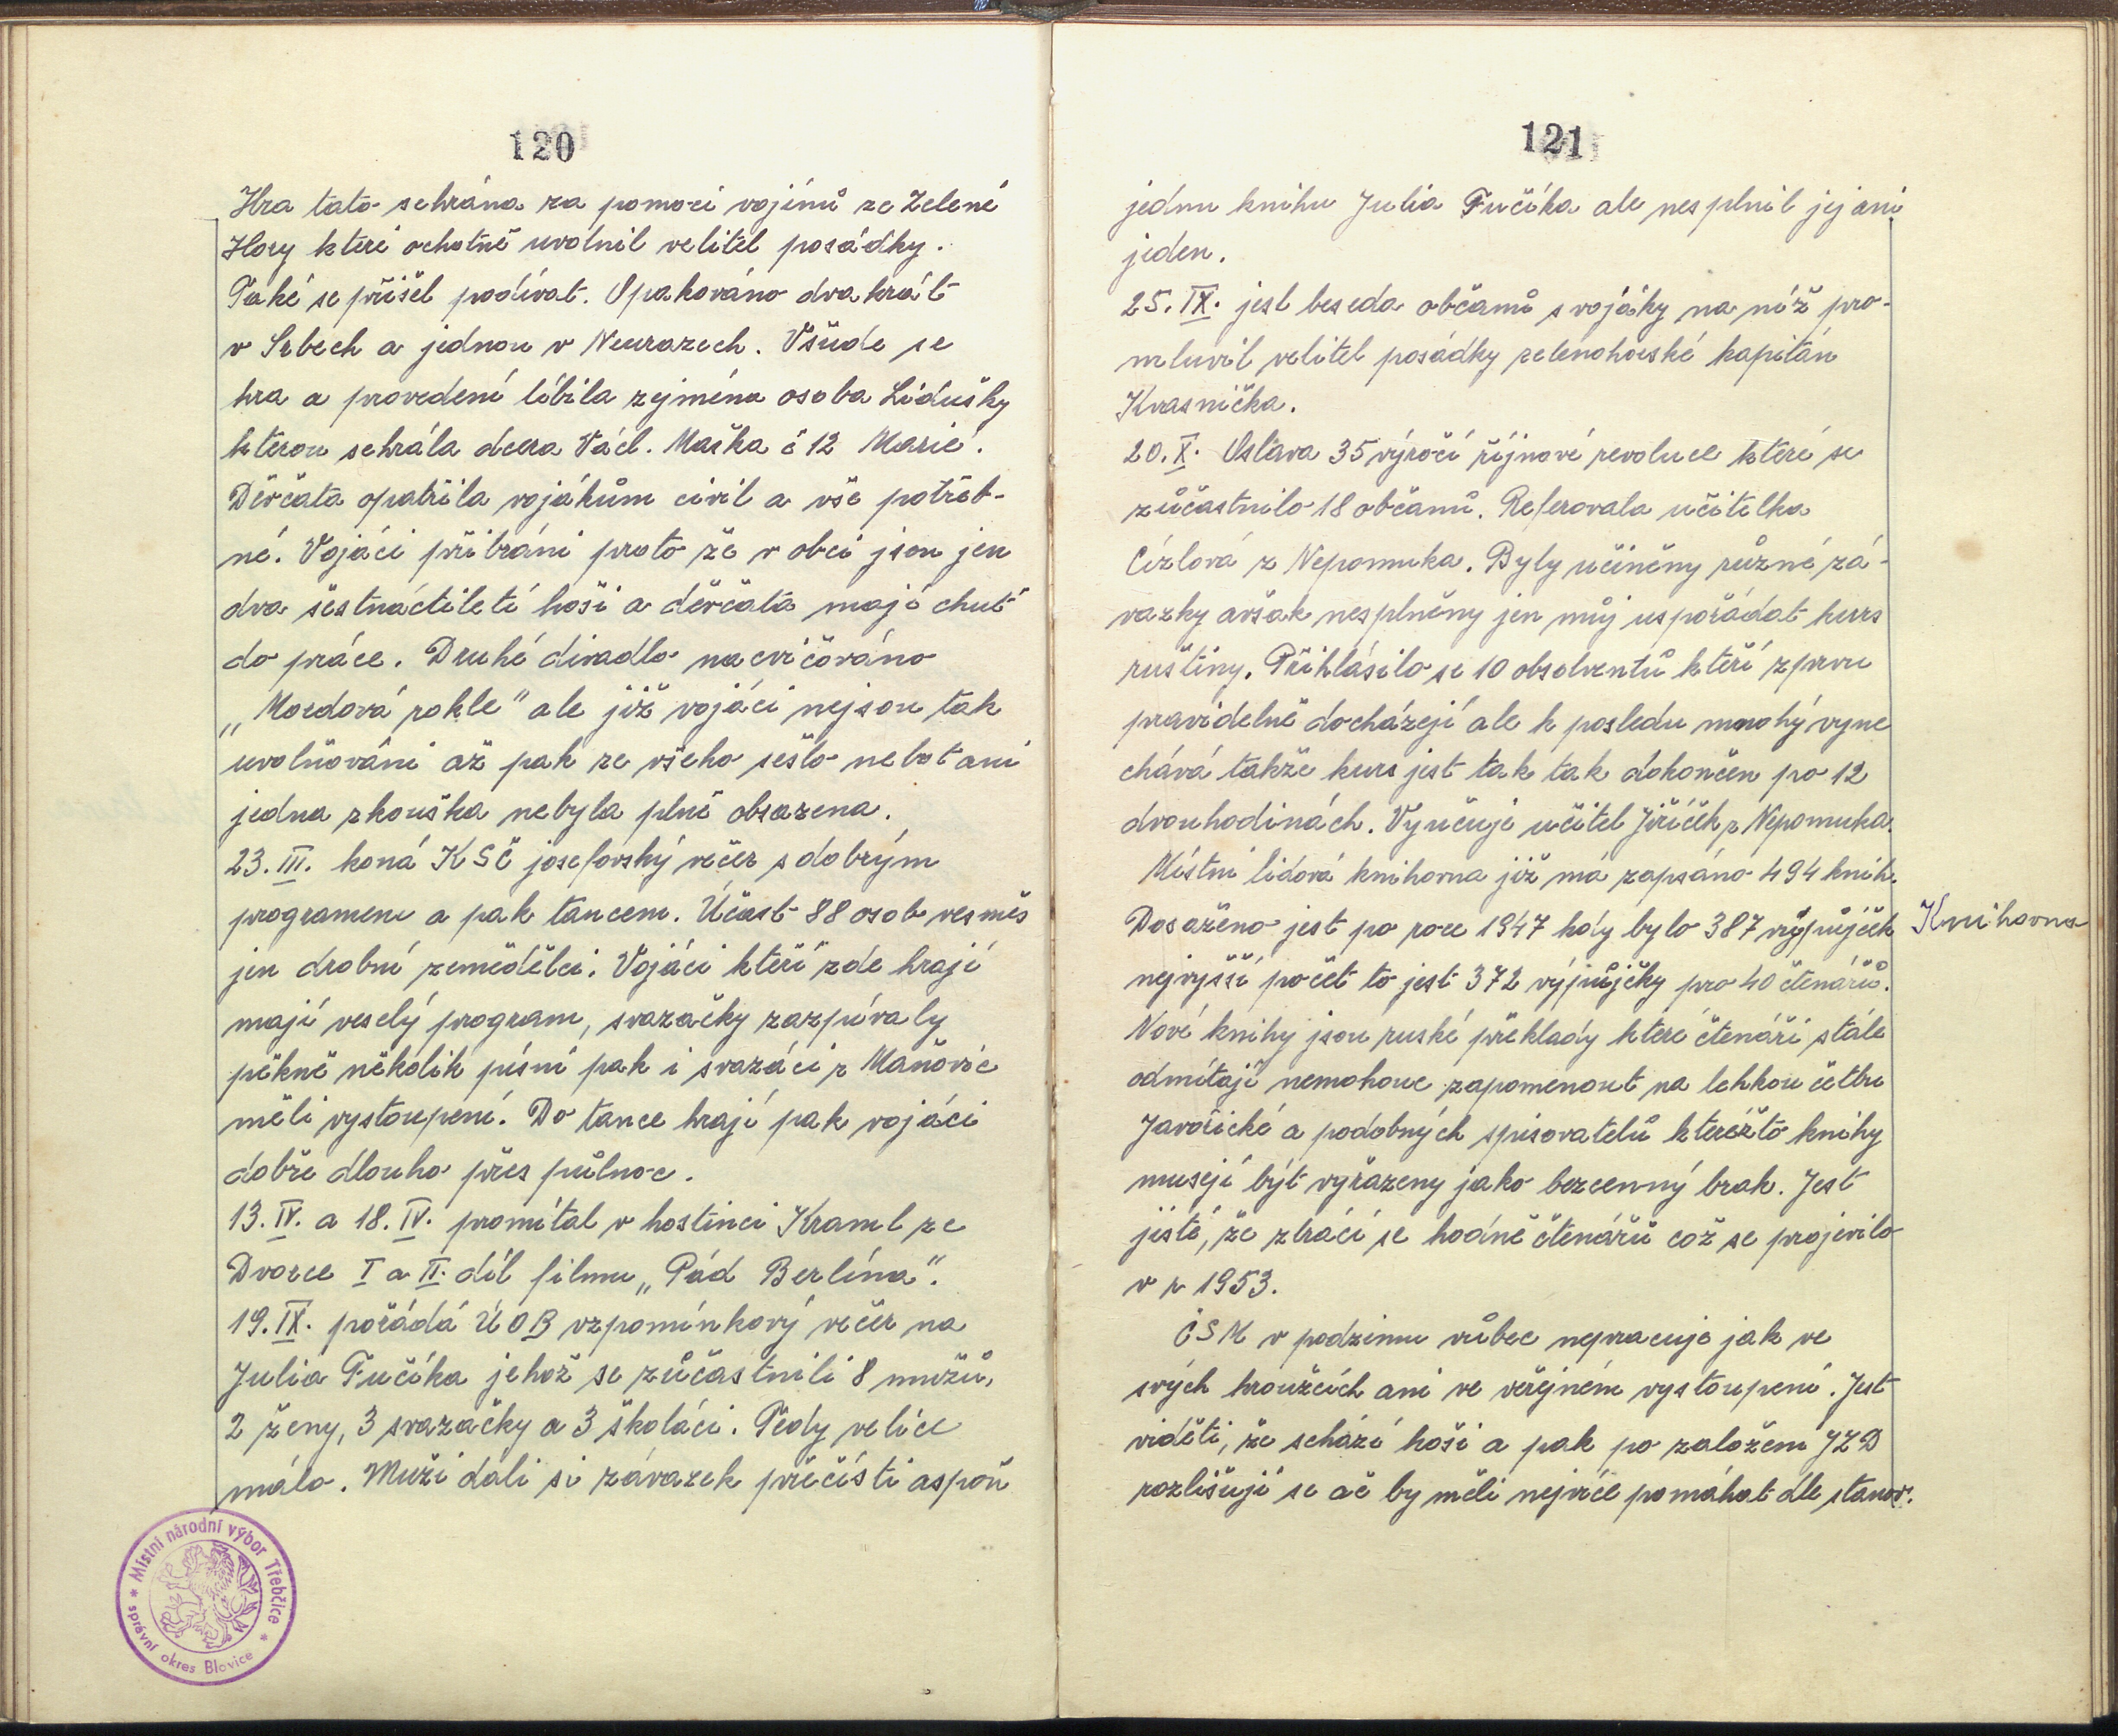 120
Hra tato sehrána za pomoci vojínů ze Zelené
Hory které ochotně uvolnil velitel posádky.
Také se přišel podívat. Opakováno dvakrát
v Srbech a jednou v Neurazech. Všude se
hra a provedení líbila zejména osoba Lidušky
kterou sehrála dcera Václ. Maška č 12 Marie.
Děvčata opatřila vojákům civil a vše potřeb-
né. Vojáci přibráni proto že v obci jsou jen
dva šestnáctiletí hoši a děvčata mají chuť
do práce. Druhé divadlo nacvičováno
„Mordová rokle" ale již vojáci nejsou tak
uvolňováni až pak ze všeho sešlo neboť ani
jedna zkouška nebyla plně obsazena.
23. III. koná KSČ josefovský večer s dobrým
programem a pak tancem. Účast 88 osob vesměs
jen drobní zemědělci. Vojáci kteří zde hrají
mají veselý program, svazačky zazpívaly
pěkně několik písní pak i svazáci z Maňovic
měli vystoupení. Do tance hrají pak vojáci
dobře dlouho přes půlnoc.
13. IV. a 18. IV. promítal v hostinci Kraml ze
Dvorce I a II. díl filmu „Pád Berlína".
19. IX. pořádá ÚOB vzpomínkový večer na
Julia Fučíka jehož se zůčastnili 8 mužů,
2 ženy, 3 svazačky a 3 školáci. Tedy velice
málo. Muži dali si závazek přečísti aspoň
* Místní národní výbor Třebčice *
správní okres Blovice
121
jednu knihu Julia Fučíka ale nesplnil jej ani
jeden.
25. IX. jest beseda občanů s vojáky na níž pro-
mluvil velitel posádky zelenohorské kapitán
Krasnička.
20. X. Oslava 35 výročí říjnové revoluce které se
zůčastnilo 18 občanů. Referovala učitelka
Cízlová z Nepomuka. Byly učiněny různé zá-
vazky avšak nesplněny jen můj uspořádat kurs
ruštiny. Přihlásilo se 10 obsolventů kteří zprvu
pravidelně docházejí ale k posledu mnohý vyne
chává takže kurs jest tak tak dokončen po 12
dvouhodinách. Vyučuje učitel Jiříček z Nepomuka.
Místní lidová knihovna již má zapsáno 494 knih.
Dosaženo jest po roce 1947 kdy bylo 387 výpůjček
Knihovna
nejvyšší počet to jest 372 výpůjčky pro 40 čtenářů.
Nové knihy jsou ruské překlady které čtenáři stále
odmítají nemohouc zapomenout na lehkou četbu
Javořické a podobných spisovatelů kteréžto knihy
musejí být vyřazeny jako bezcenný brak. Jest
jisté, že ztrácí se hodně čtenářů což se projevilo
v r 1953.
ČSM v podzimu vůbec nepracuje jak ve
svých kroužcích ani ve veřejném vystoupení. Jest
viděti, že schází hoši a pak po založení JZD
rozlišují se ač by měli nejvíce pomáhat dle stanov.